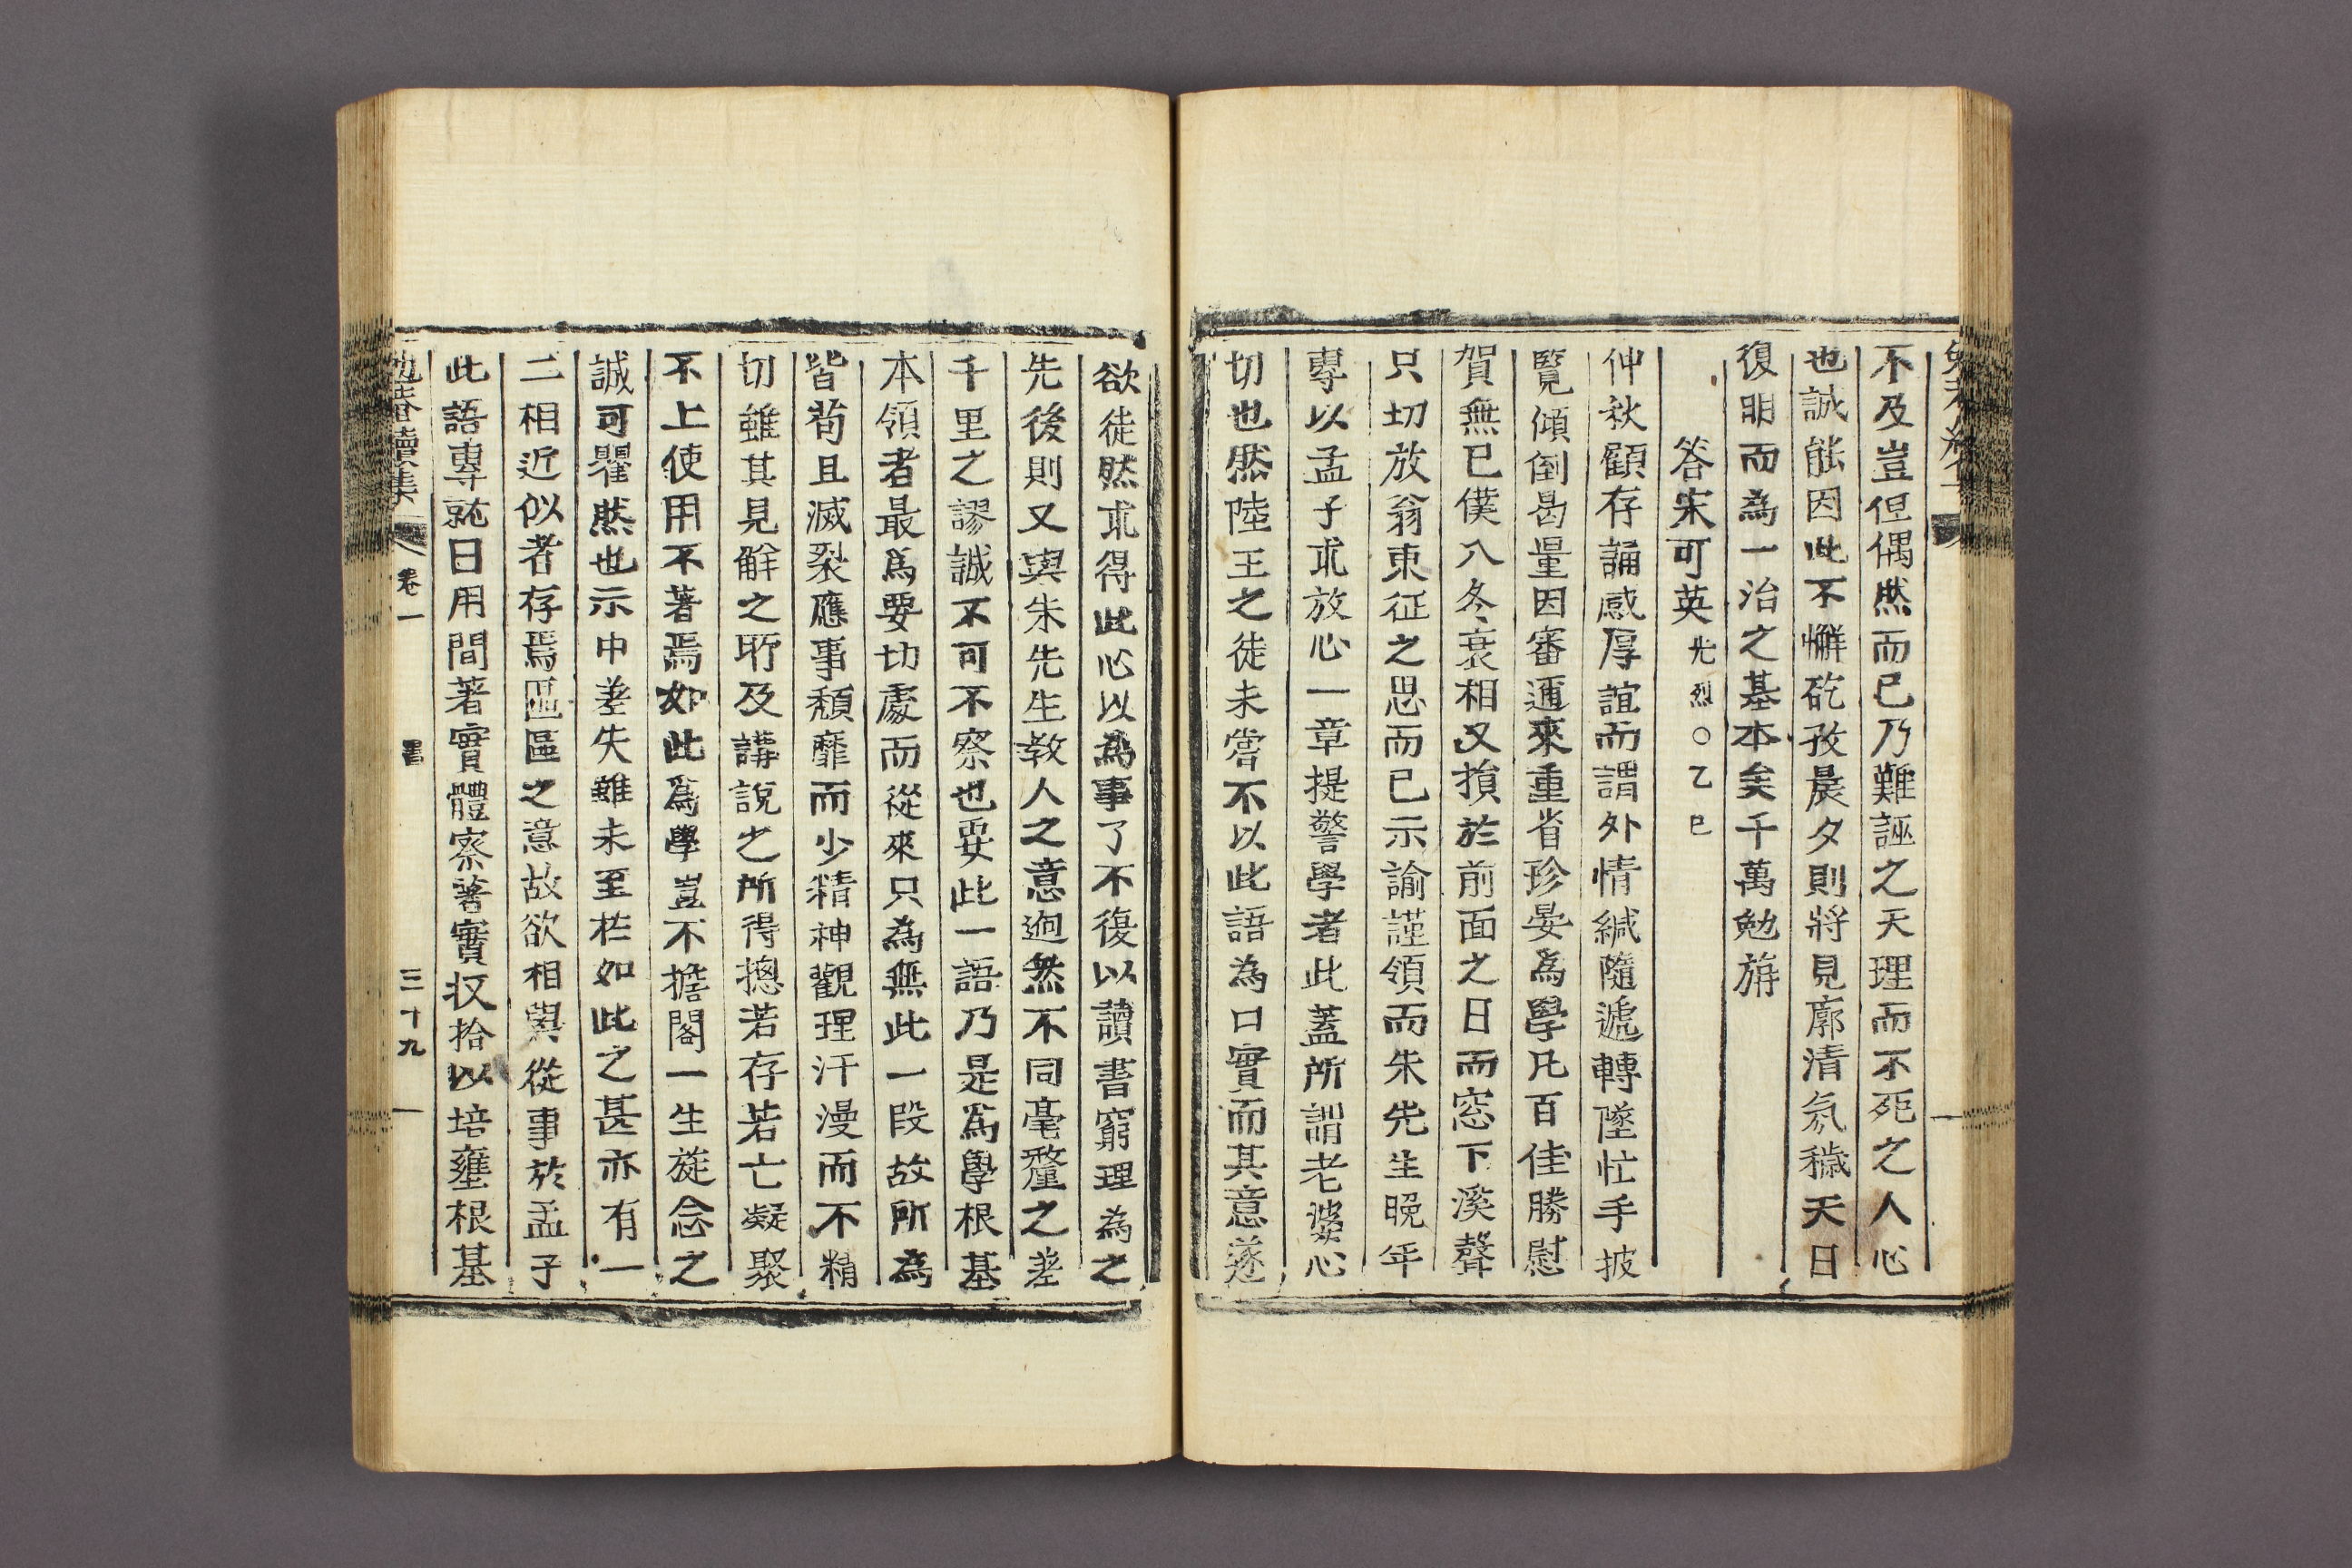 不及豈但偶然而已乃難誣之天理而不死之人心
也誠能因此不懈矻孜晨夕則將見廓清氛穢天日
復明而為一治之基本矣千萬勉旃
答宋可英光烈○乙巳
仲秋顧存誦感厚誼而謂外情緘隨遞轉墜忙手披
覽傾倒曷量因審邇來重省珍晏為學凡百佳勝慰
賀無已僕入冬衰相又損於前面之日而窓下溪聲
只切放翁東征之思而已示諭謹領而朱先生晩年
專以孟子求放心一章提警學者此蓋所謂老婆心
切也然陸王之徒未嘗不以此語為口實而其意遂
欲徒然求得此心以為事了不復以讀書窮理為之
先後則又與朱先生教人之意逈然不同毫釐之差
千里之謬誠不可不察也要此一語乃是為學根基
本領者最為要切處而從來只為無此一段故所為
皆苟且滅裂應事頹靡而少精神觀理汗漫而不精
切雖其見解之所及講說之所得摠若存若亡凝聚
不上使用不著焉如此為學豈不擔閣一生旋念之
誠可瞿然也示中差失雖未至於如此之甚亦有一
二相近似者存焉區區之意故欲相與從事於孟子
此語專就日用間著實體察著實収拾以培壅根基
續集
卷一
書
三十九